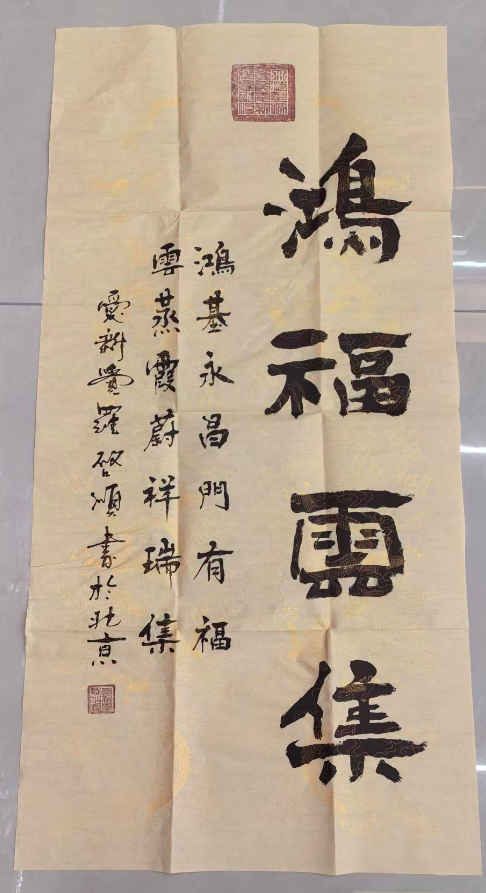 鴻福雲集
鴻基永昌門有福
雲蒸霞蔚祥瑞集
愛新覺羅啓頌書於北京